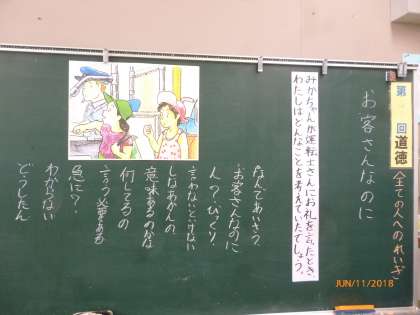 第 回 道徳
全ての人へのれいぎ
お客さんなのに
みかちゃんが運転士さんにお礼を言ったとき、
わたしはどんなことを考えていたでしょう。
なんであいさつ
お客さんなのに
ん?びっくり
言わないといけない
しなあかんの
意味あるのかな
何してるの
言う必要ある
急に?
わからない
どうしたん
JUN/11/2018